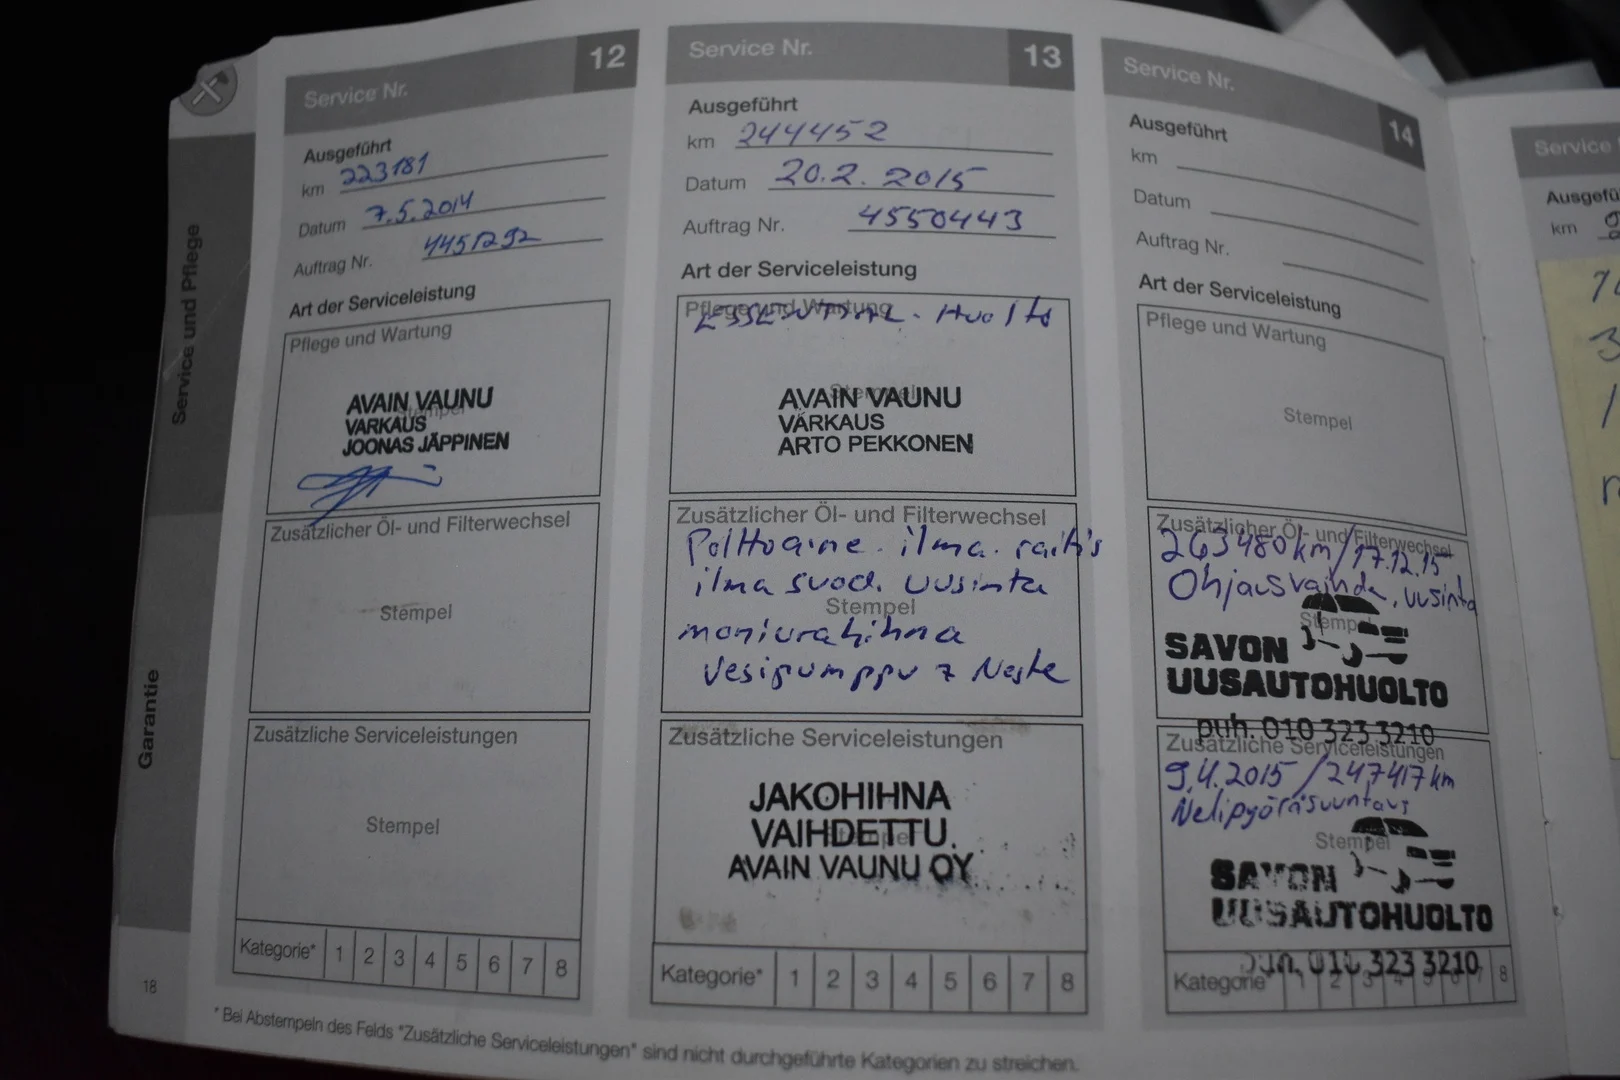 Service und Pflege
Garantie
18
Service Nr. 12
Ausgeführt
km 223181
Datum 7.5.2014
Auftrag Nr. 4451292
Art der Serviceleistung
Pflege und Wartung
Stempel
AVAIN VAUNU
VARKAUS
JOONAS JÄPPINEN
Zusätzlicher Öl- und Filterwechsel
Stempel
Zusätzliche Serviceleistungen
Stempel
Kategorie* 1 2 3 4 5 6 7 8
Service Nr. 13
Ausgeführt
km 244452
Datum 20.2.2015
Auftrag Nr. 4550443
Art der Serviceleistung
Pflege und Wartung
Huolto
Stempel
AVAIN VAUNU
VARKAUS
ARTO PEKKONEN
Zusätzlicher Öl- und Filterwechsel
Polttoaine. ilma. raitis
ilma suod. uusinta
Stempel
moniurahihna
Vesipumppu + Neste
Zusätzliche Serviceleistungen
JAKOHIHNA
VAIHDETTU.
Stempel
AVAIN VAUNU OY
Kategorie* 1 2 3 4 5 6 7 8
Service Nr. 14
Ausgeführt
km
Datum
Auftrag Nr.
Art der Serviceleistung
Pflege und Wartung
Stempel
Zusätzlicher Öl- und Filterwechsel
263480km/17.12.15
Ohjausvaihde, uusinta
Stempel
SAVON
UUSAUTOHUOLTO
puh. 010 323 3210
Zusätzliche Serviceleistungen
9.4.2015/247417km
Nelipyöräsuuntaus
Stempel
SAVON
UUSAUTOHUOLTO
puh. 010 323 3210
Kategorie* 1 2 3 4 5 6 7 8
* Bei Abstempeln des Felds "Zusätzliche Serviceleistungen" sind nicht durchgeführte Kategorien zu streichen.
Service
km